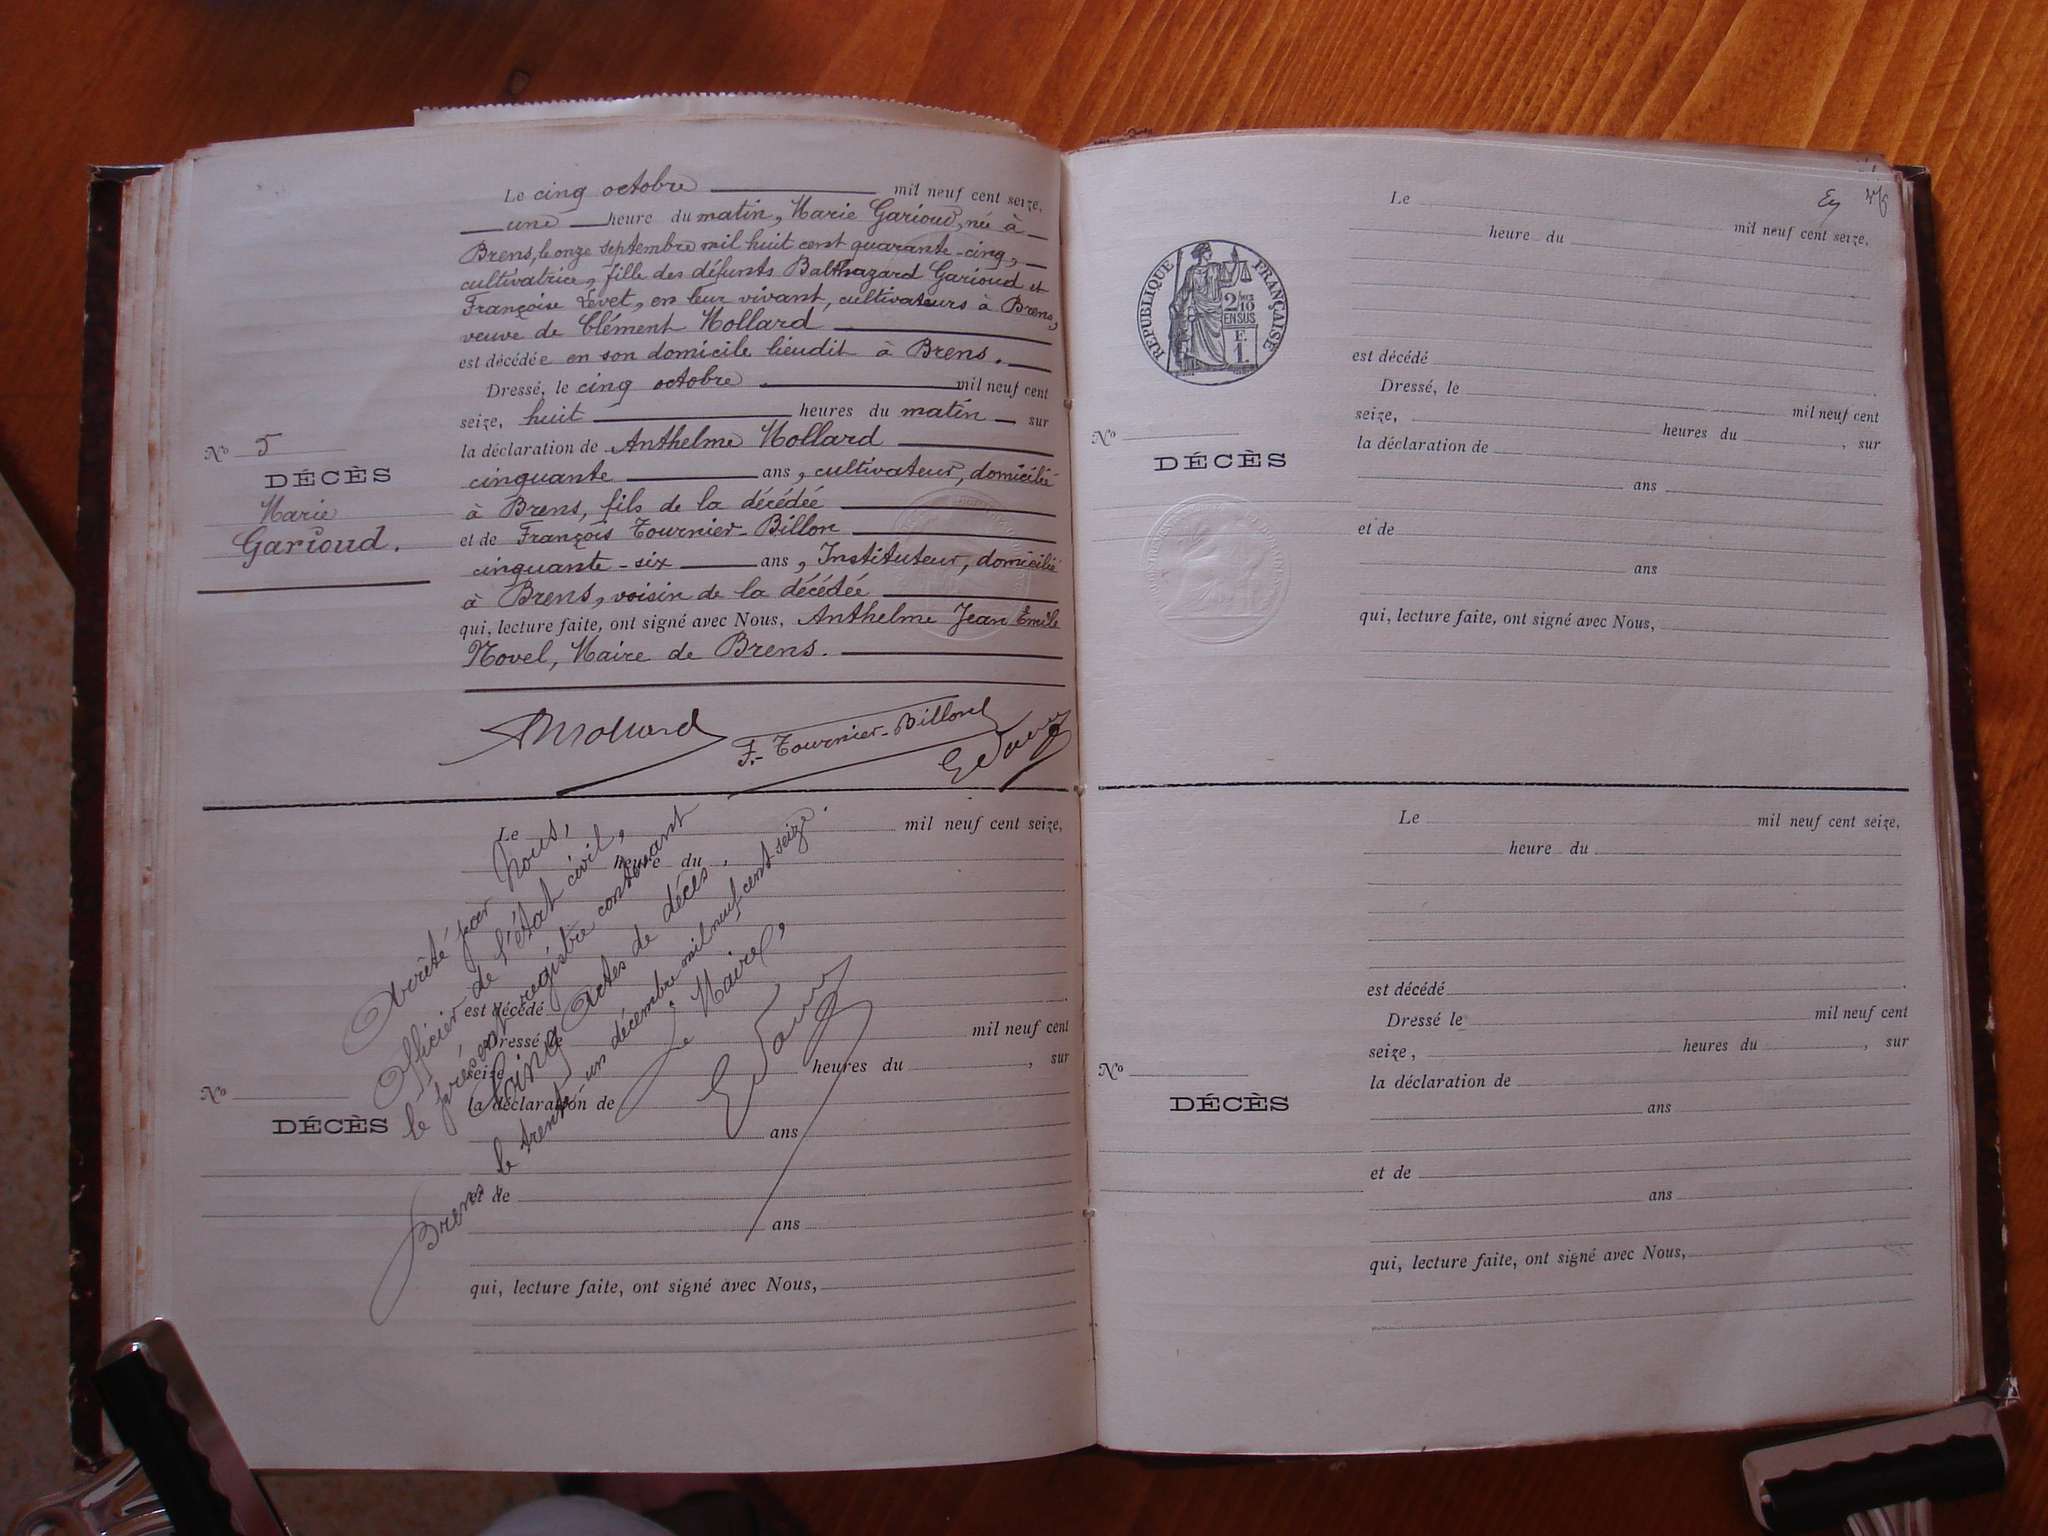 Le cinq octobre mil neuf cent seize,
une heure du matin, Marie Garioud, née à
Brens, le onze septembre mil huit cent quarante-cinq,
cultivatrice, fille des défunts Balthazard Garioud et
Françoise Levet, en leur vivant, cultivateurs à Brens,
veuve de Clément Mollard
est décédée en son domicile lieudit à Brens.
Dressé, le cinq octobre mil neuf cent
seize, huit heures du matin sur
la déclaration de Anthelme Mollard
cinquante ans, cultivateur, domicilié
à Brens, fils de la décédée
et de François Tournier-Billon
cinquante-six ans, Instituteur, domicilié
à Brens, voisin de la décédée
qui, lecture faite, ont signé avec Nous, Anthelme Jean Emile
Novel, Maire de Brens.
No 5
DÉCÈS
Marie
Garioud.
AMollard
F. Tournier-Billon
Le mil neuf cent seize,
heure du
est décédé
Dressé le mil neuf cent
seize heures du , sur
la déclaration de
ans
et de
ans
qui, lecture faite, ont signé avec Nous,
No
DÉCÈS
Arrêté par Nous,
Officier de l'état civil,
le présent registre contenant
Cinq Actes de décès.
Brens le trente-un décembre mil neuf cent seize.
Le Maire,
Le
mil neuf cent seize,
heure du
RÉPUBLIQUE FRANÇAISE
2/10
EN SUS
F.
1.
est décédé
Dressé, le mil neuf cent
seize, heures du , sur
la déclaration de
ans
et de
ans
qui, lecture faite, ont signé avec Nous,
No
DÉCÈS
Le mil neuf cent seize,
heure du
est décédé
Dressé le mil neuf cent
seize, heures du , sur
la déclaration de
ans
et de
ans
qui, lecture faite, ont signé avec Nous,
No
DÉCÈS